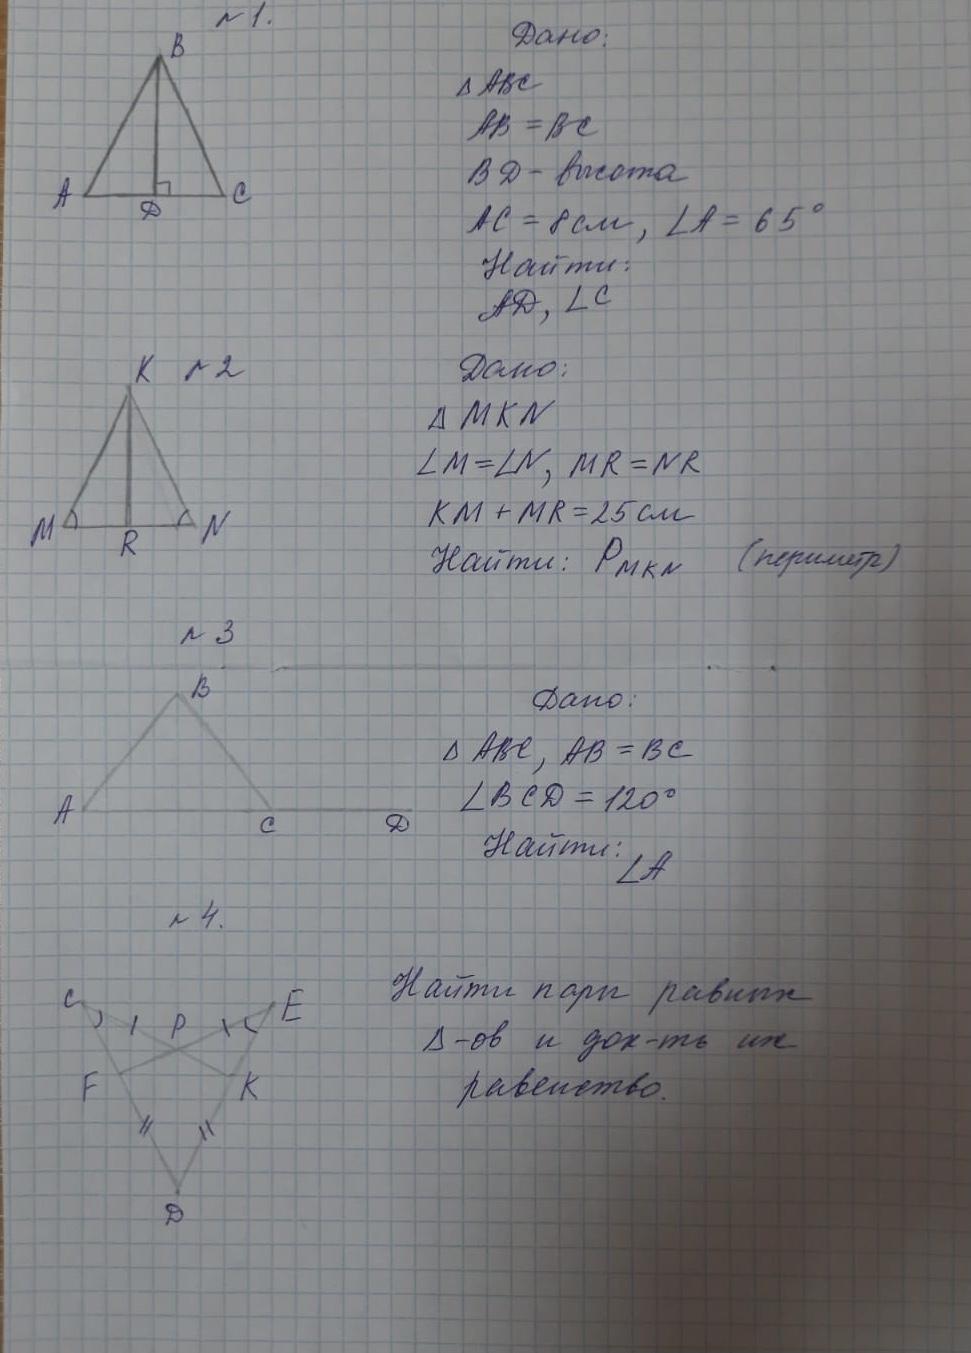 №1.
B
A
D
C
Дано:
Δ ABC
AB = BC
BD - высота
AC = 8 см, ∠A = 65°
Найти:
AD, ∠C
№2
K
M
R
N
Дано:
Δ MKN
∠M=∠N, MR=NR
KM + MR = 25 см
Найти: P_MKN (периметр)
№3
B
A
C
D
Дано:
Δ ABC, AB = BC
∠BCD = 120°
Найти:
∠A
№4.
C
P
E
F
K
D
Найти пары равных
Δ-ов и док-ть их
равенство.